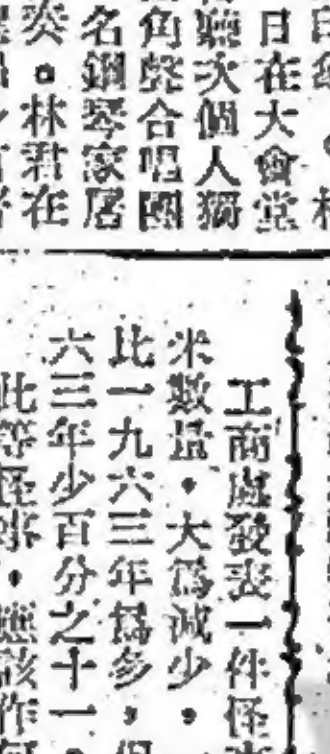 日在大會堂
次個人獨
角聲合唱團
名鋼琴家居
奏。林君在
工商處發表一件怪
米數量，大爲減少，
比一九六三年爲多，但
六三年少百分之十一。
此等怪事，應該作何